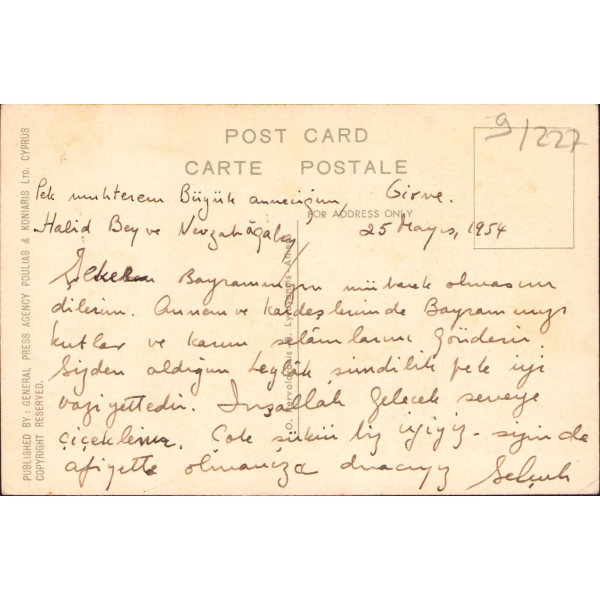 9/227
POST CARD
CARTE POSTALE
Pek muhterem Büyük anneciğim, Girne.
FOR ADDRESS ONLY
Halid Bey ve Nevzat ağabey 25 Mayıs, 1954
Şeker Bayramınızın mübarek olmasını
dilerim. Annem ve kardeşlerim de Bayramınızı
kutlar ve karım selâmlarını gönderir.
Sizden aldığım leylâk şimdilik pek iyi
vaziyettedir. İnşallah gelecek seneye
çiçeklenir. Çok şükür biz iyiyiz - sizin de
afiyette olmanıza duacıyız Selçuk
PUBLISHED BY: GENERAL PRESS AGENCY POULIAS & KONIARIS LTD. CYPRUS
COPYRIGHT RESERVED.